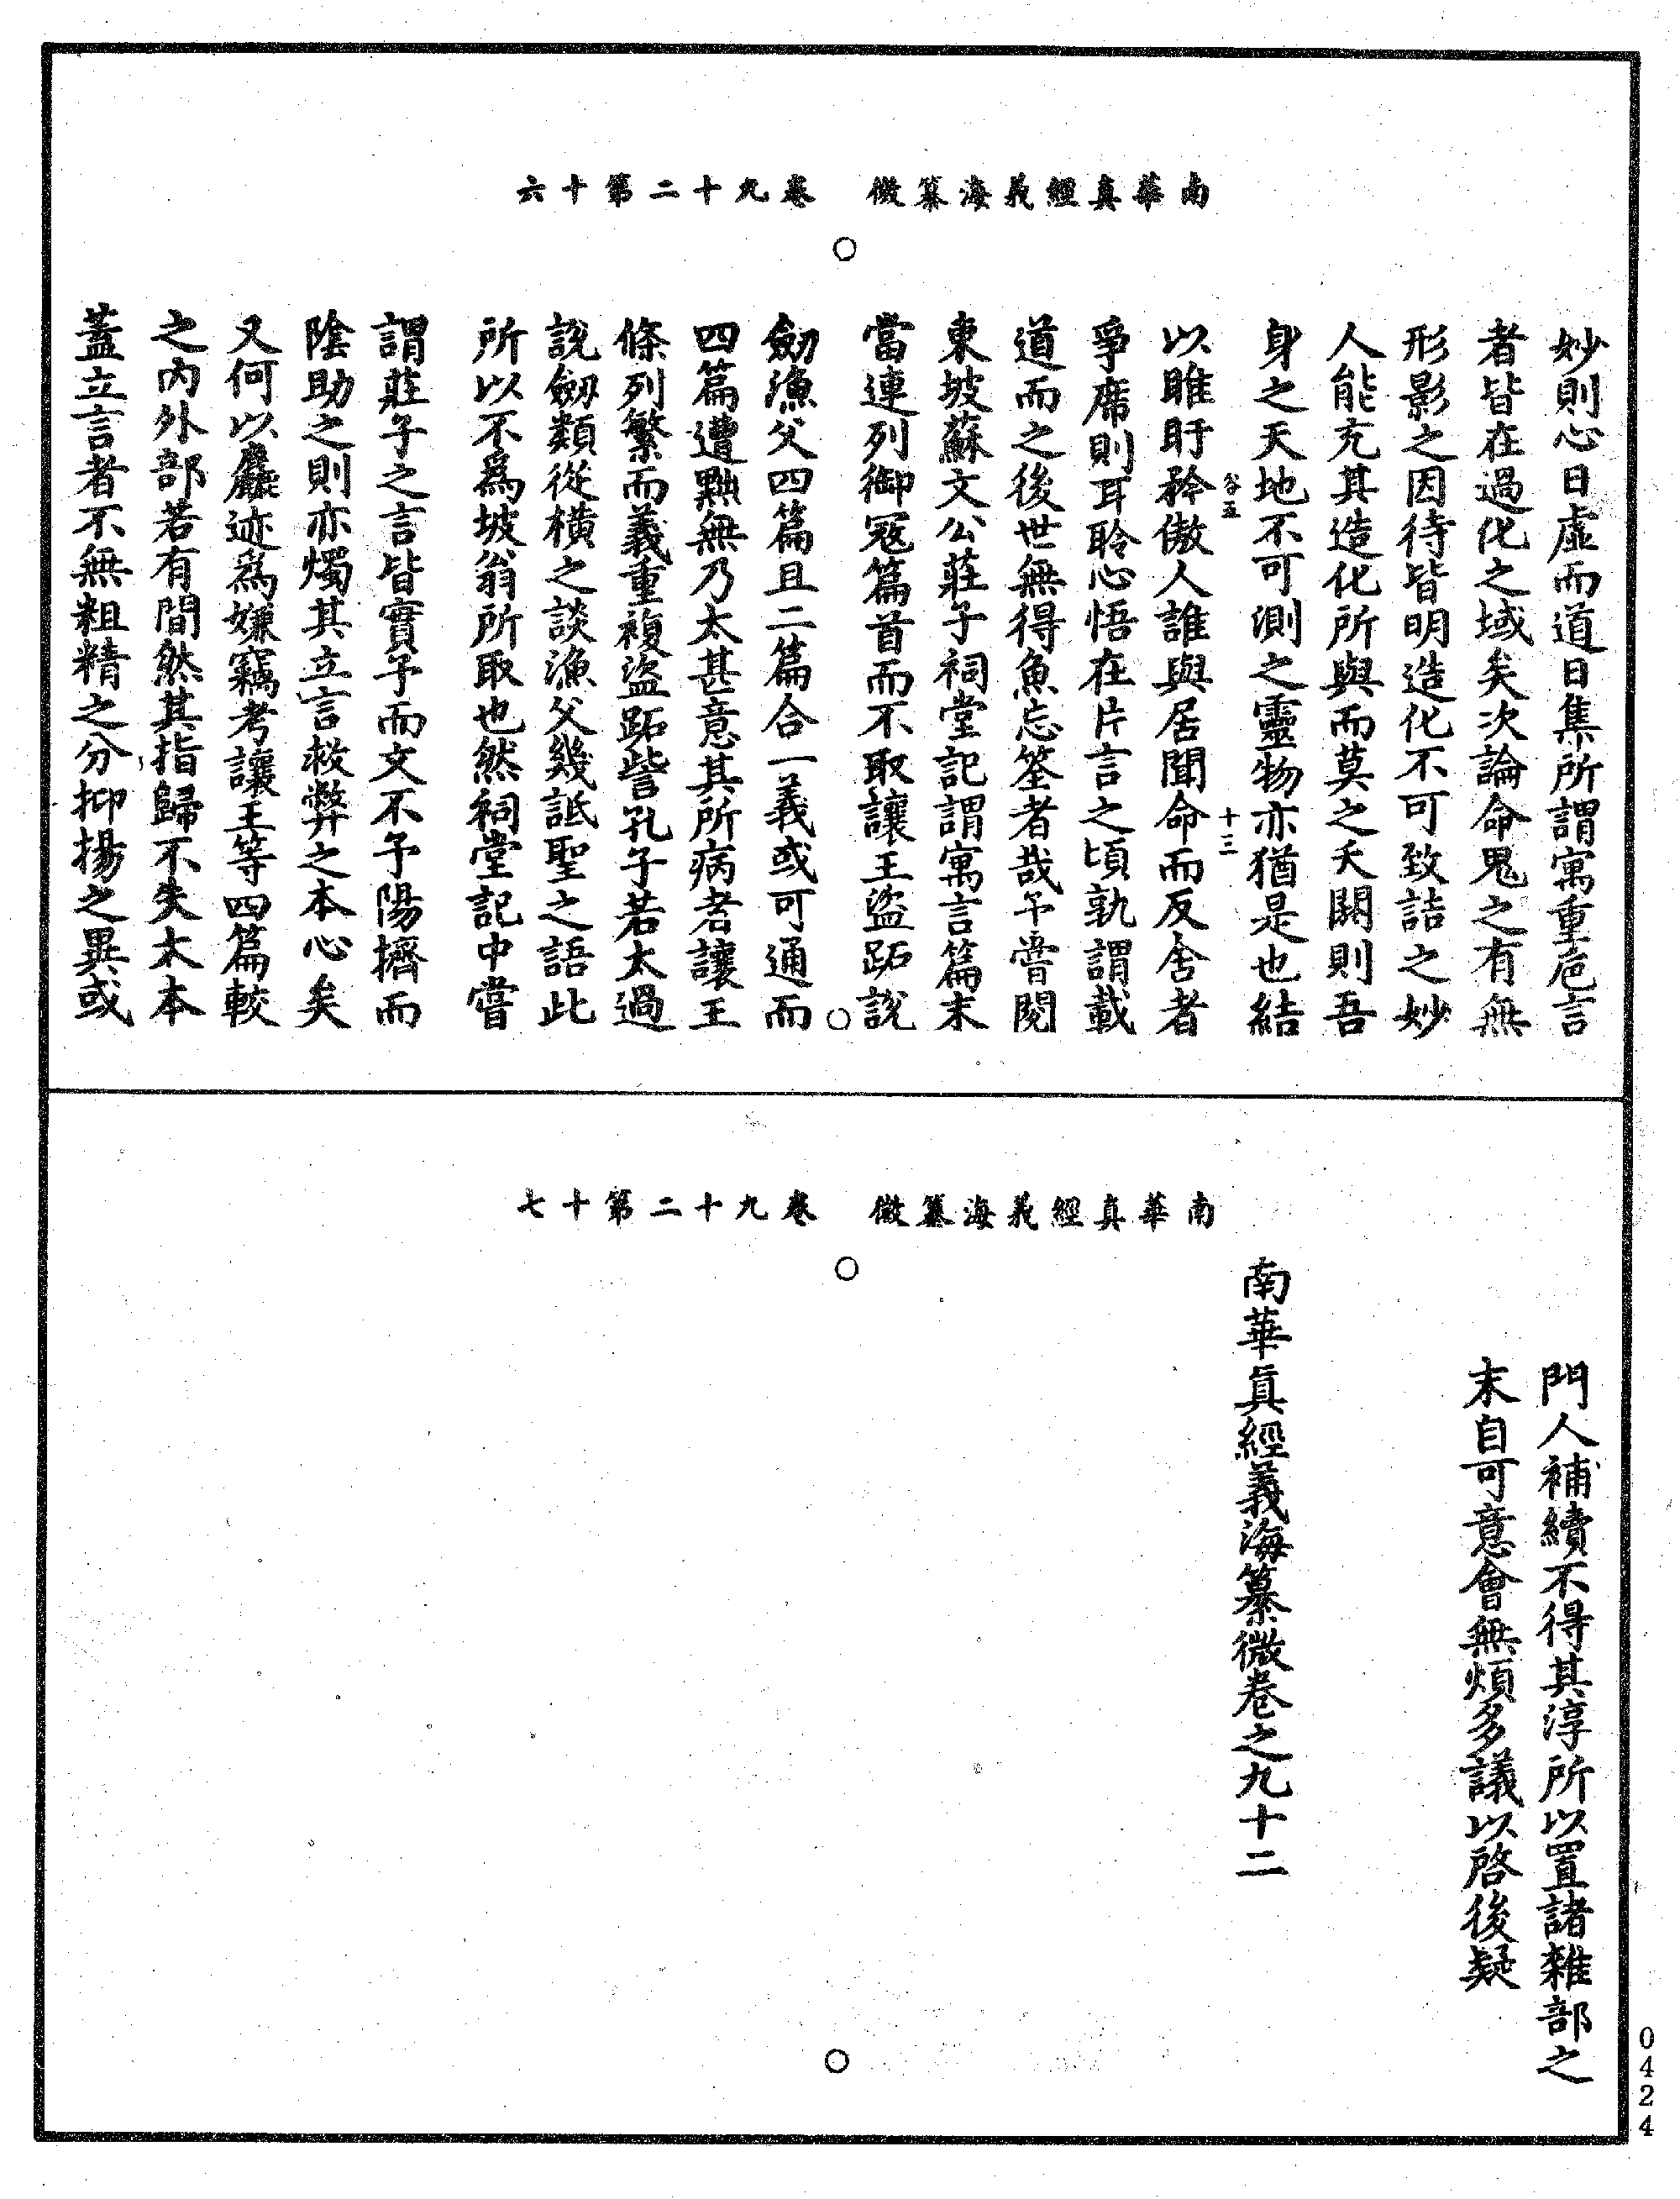 南華真經義海纂微　卷九十二第十六
妙則心日虛而道日集所謂寓重巵言
者皆在過化之域矣次論命鬼之有無
形影之因待皆明造化不可致詰之妙
人能充其造化所與而莫之夭閼則吾
身之天地不可測之靈物亦猶是也結
谷五　十三
以睢盱矜傲人誰與居聞命而反舍者
爭席則耳聆心悟在片言之頃孰謂載
道而之後世無得魚忘筌者哉予嘗閱
東坡蘇文公莊子祠堂記謂寓言篇末
當連列御寇篇首而不取讓王盜跖說
劒漁父四篇且二篇合一義或可通而
四篇遭黜無乃太甚意其所病者讓王
條列繁而義重複盜跖訾孔子若太過
說劒類從橫之談漁父幾詆聖之語此
所以不爲坡翁所取也然祠堂記中嘗
謂莊子之言皆實予而文不予陽擠而
陰助之則亦燭其立言救弊之本心矣
又何以麤迹爲嫌竊考讓王等四篇較
之內外部若有間然其指歸不失大本
蓋立言者不無粗精之分抑揚之異或
南華真經義海纂微　卷九十二第十七
門人補續不得其淳所以置諸雜部之
末自可意會無煩多議以啓後疑
南華真經義海纂微卷之九十二
0424